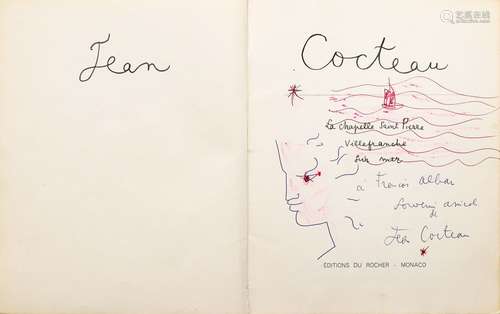 Jean
Cocteau
La chapelle Saint Pierre
Villefranche
sur mer
à Francis
Souvenir amical
de
Jean Cocteau
ÉDITIONS DU ROCHER - MONACO